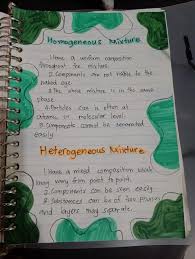 Homogeneous Mixture
1. Have a uniform composition
throughout the mixture.
2. Components are not visible to the
naked eye.
3. The whole mixture is in the same
phase.
4. Particles can is often at
atomic or molecular level.
5. Components cannot be separated
easily
Heterogeneous Mixture
1. Have a mixed composition which
may vary from point to point.
2. Components can be seen easily.
3. Substances can be of two phases
and layers may separate.